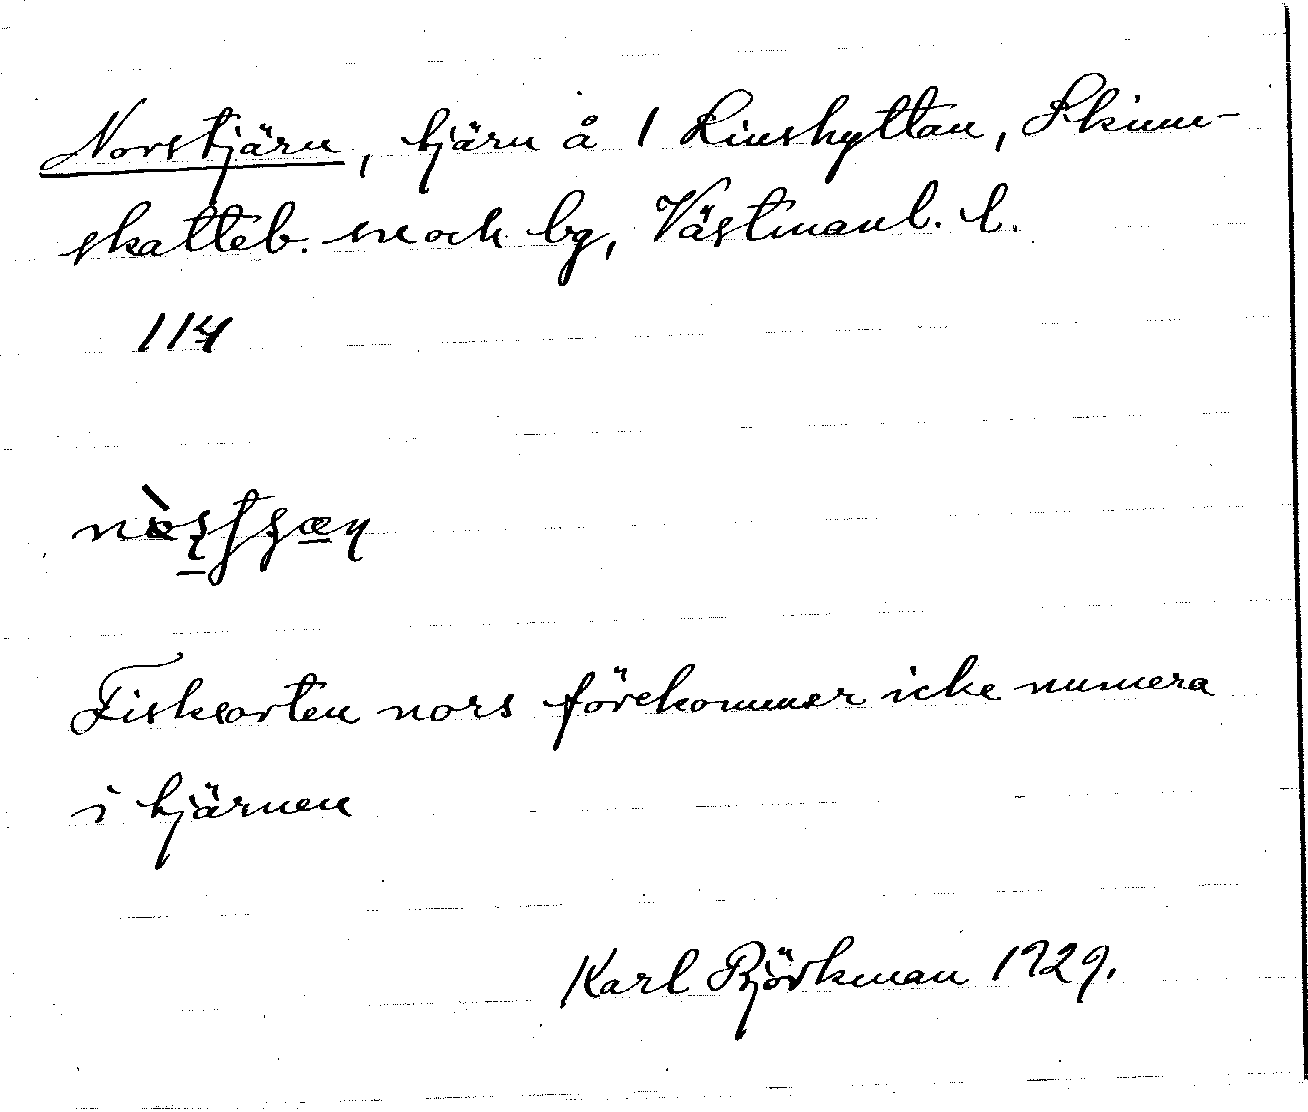 Norstjärn, tjärn å 1 Linshyttan, Skinn-
skatteb. sn och bg, Västmanl. l.
114
Fisksorten nors förekommer icke numera
i tjärnen
Karl Björkman 1929.